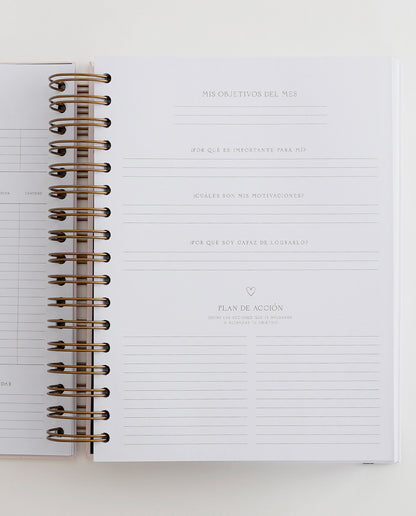 MIS OBJETIVOS DEL MES
¿POR QUÉ ES IMPORTANTE PARA MÍ?
¿CUÁLES SON MIS MOTIVACIONES?
¿POR QUÉ SOY CAPAZ DE LOGRARLO?
PLAN DE ACCIÓN